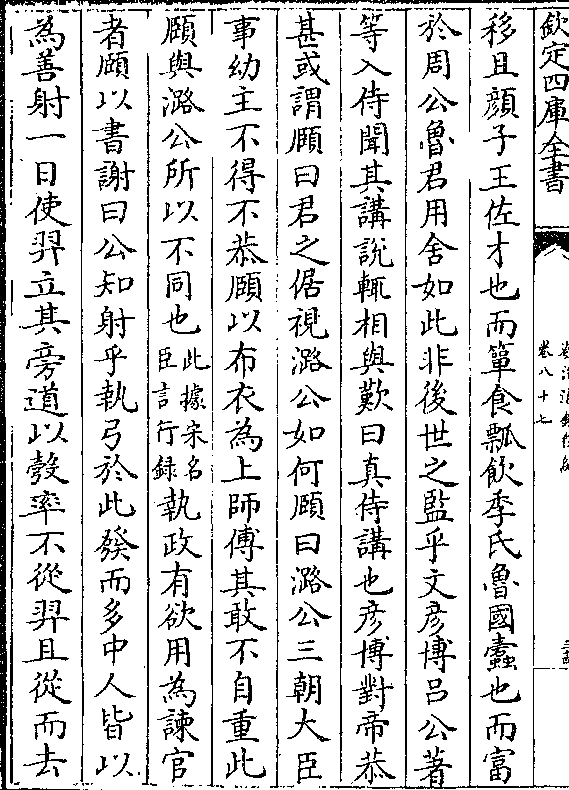 欽定四庫全書
卷八十七
移且顔子王佐才也而簞食瓢飲季氏魯國蠹也而富
於周公魯君用舍如此非後世之監乎文彦博吕公著
等入侍聞其講說輒相與歎曰真侍講也彦博對帝恭
甚或謂頤曰君之倨視潞公如何頤曰潞公三朝大臣
事幼主不得不恭頤以布衣為上師傅其敢不自重此
頤與潞公所以不同也此據宋名臣言行録執政有欲用為諫官
者頤以書謝曰公知射乎執弓於此發而多中人皆以
為善射一日使羿立其旁道以彀率不從羿且從而去